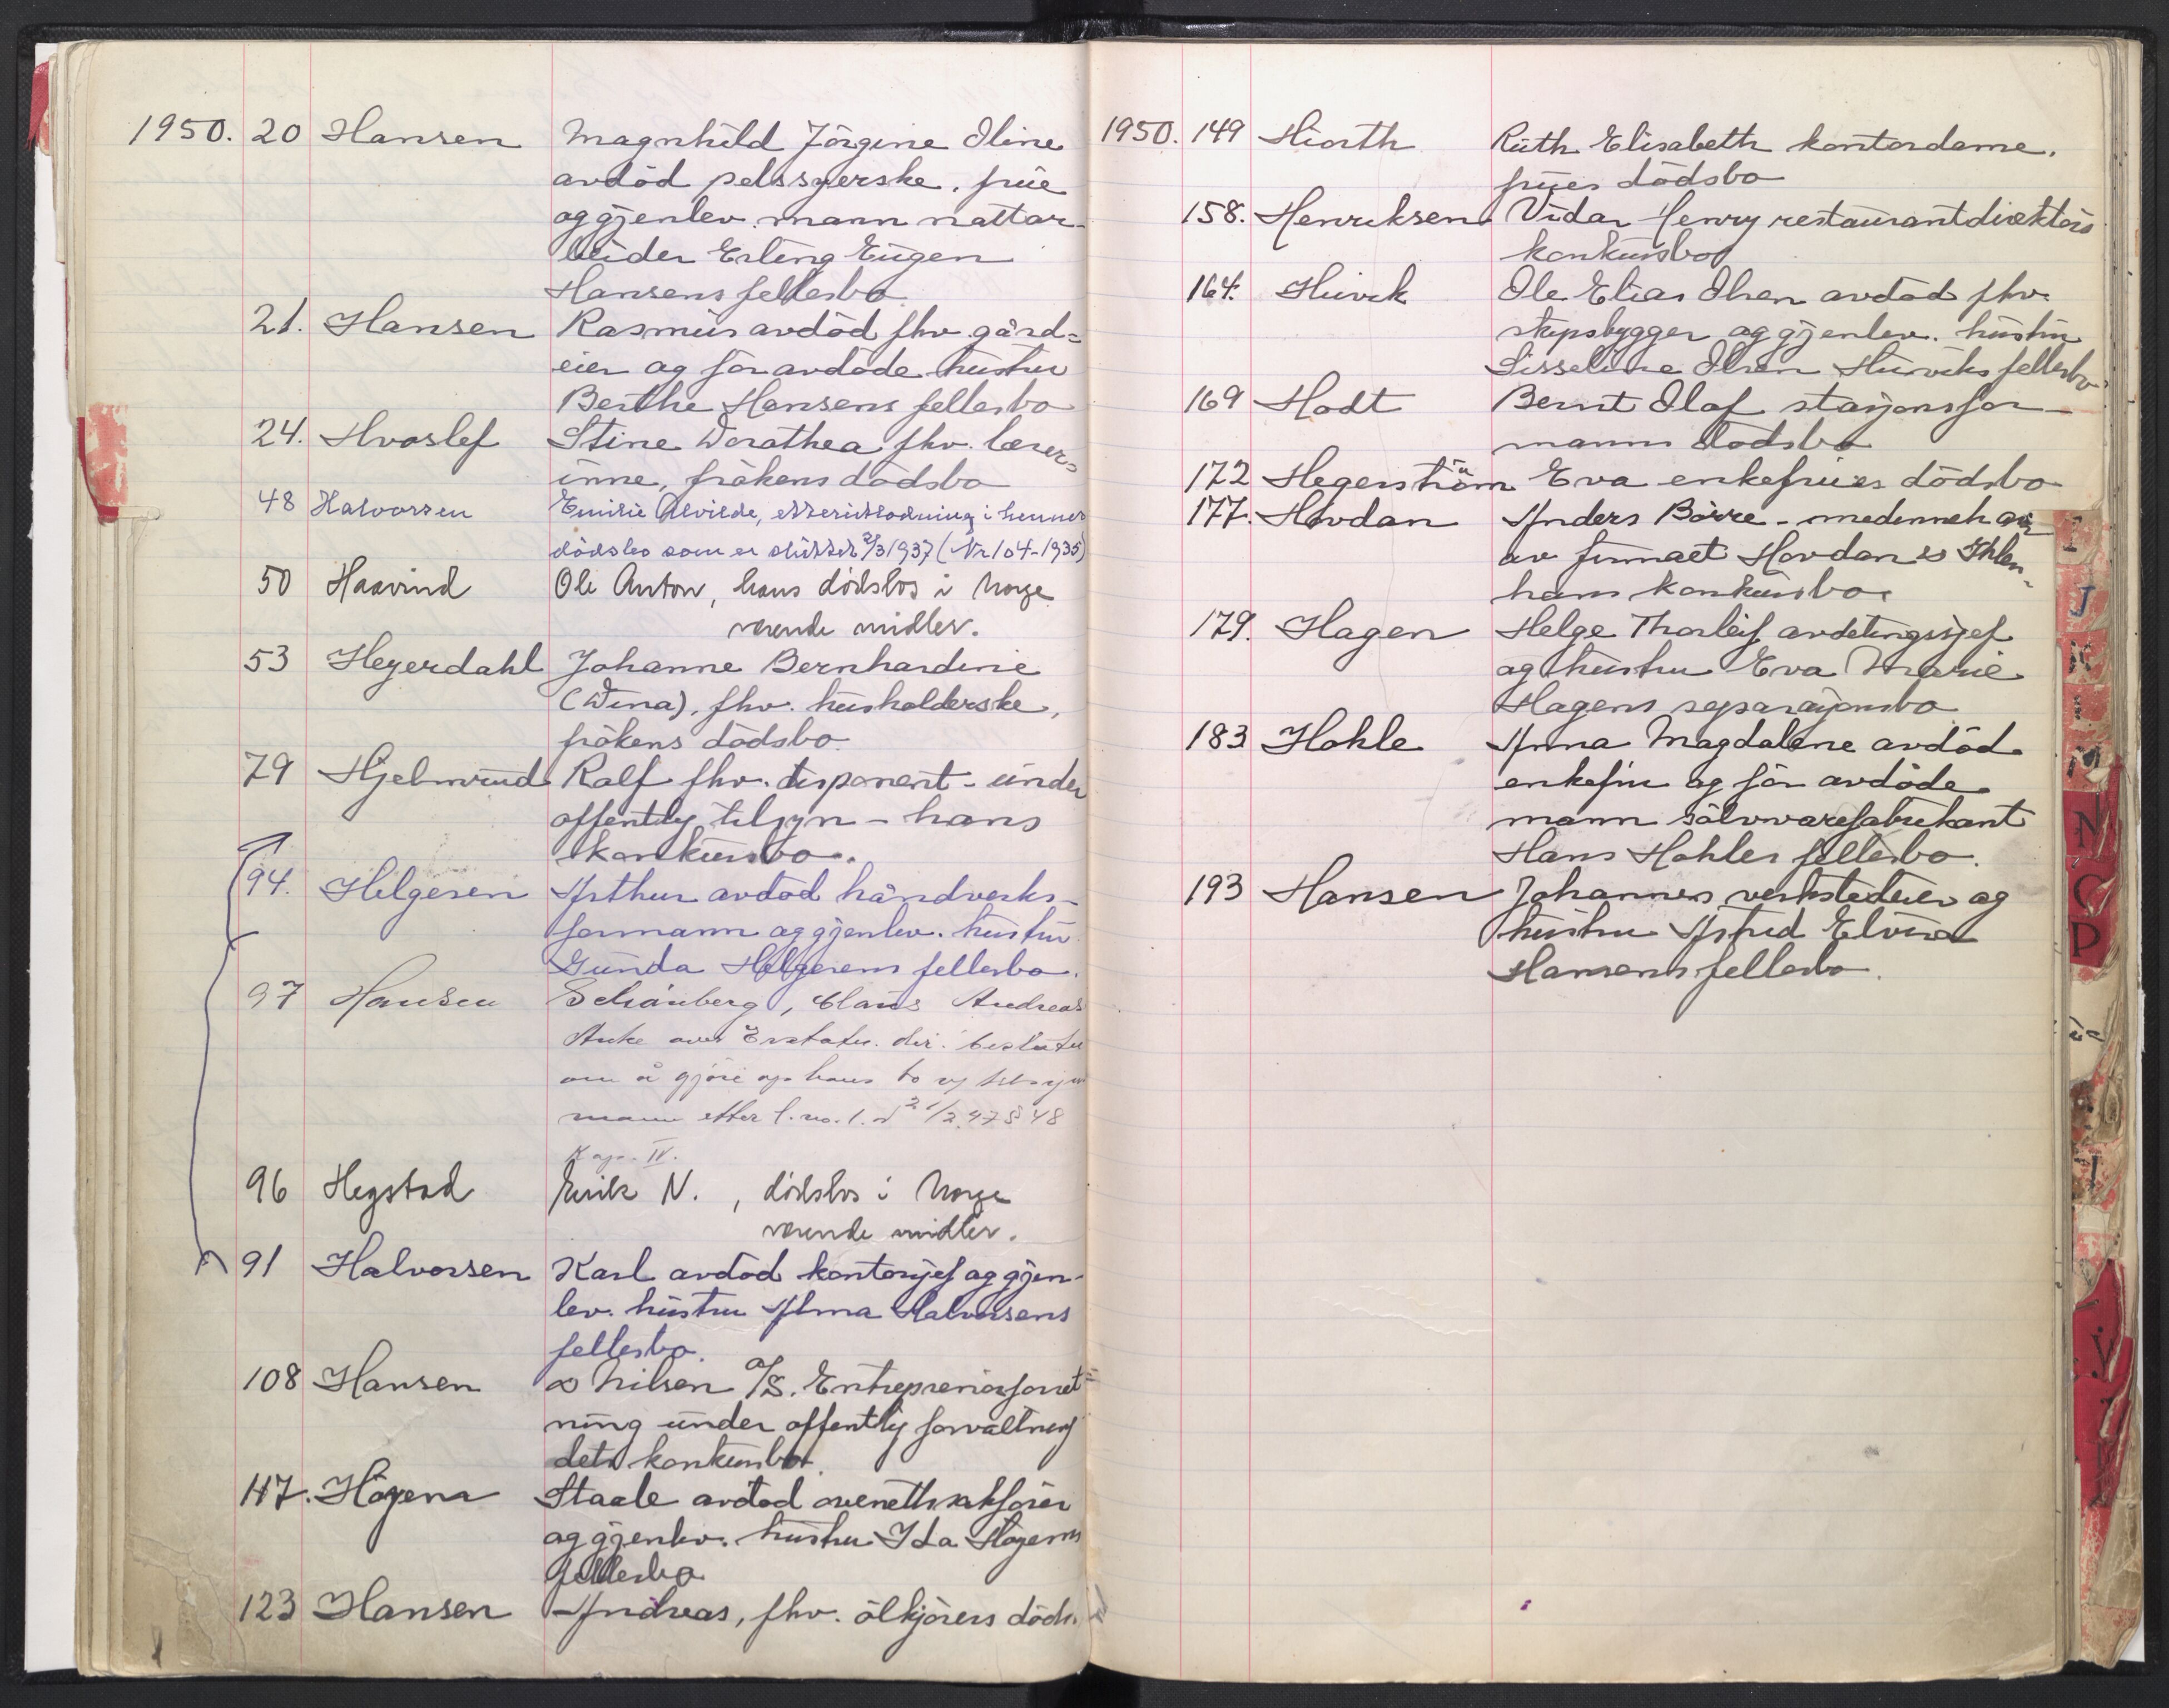 1950. 20 Hansen Magnhild Jörgine Oline
avdöd pelssyerske, frue
og gjenlev. mann nattar-
beider Erling Eugen
Hansens fellesbo
21. Hansen Rasmus avdöd fhv. gård=
eier og för avdöde hustru
Berthe Hansens fellesbo
24. Hvoslef Stine Dorothea fhv. lærer=
inne, frökens dödsbo
48 Halvorsen Emilie Alvilde, efterutlodning i hennes
dödsbo som er sluttet 2/3 1937 (Nr 104-1935)
50 Haavind Ole Anton, hans dödsbos i Norge
værende midler.
53 Heyerdahl Johanne Bernhardine
(Dina), fhv. husholderske,
frökens dödsbo
79 Hjelmrud Ralf fhv. disponent - under
offentlig tilsyn - hans
konkursbo.
94. Helgesen Arthur avdöd håndverks-
formann og gjenlev. hustru
Gunda Helgesens fellesbo.
97 Hansen Schänberg, Claus Andreas
Anke over Erstatn. dir. beslutn
om å gjöre op hans bo ved tilsyns
mann etter l. no. 1. d 21/2.47 § 48
Kap. IV.
96 Hegstad Erik N., dödsbos i Norge
værende midler.
91 Halvorsen Karl avdöd kontorsjef og gjen-
lev. hustru Alma Halvorsens
fellesbo.
108 Hansen & Nilsen A/S. Entreprenörforret=
ning under offentlig forvaltning
dets konkursbo.
117. Höyena Staale avdöd overettssakförer
og gjenlev. hustru Ida Höyenas
fellesbo
123 Hansen Andreas, fhv. ölkjörers döds.
1950. 149 Hiorth Ruth Elisabeth kontordame,
frues dödsbo
158. Henriksen Vidar Henry restaurantdirektörs
konkursbo
164. Hurvik Ole Elias Olsen avdöd fhv.
skipsbygger og gjenlev. hustru
Sisseline Olsen Hurviks fellesbo
169 Hodt Bernt Olaf stasjonsfor-
manns dödsbo
172 Hegerström Eva enkefrues dödsbo
177. Hovdan Anders Börre - medinneh av
av firmaet Hovdan & Ihlen-
hans konkursbo.
179. Hagen Helge Thorleif avdelingssjef
og hustru Eva Marie
Hagens separasjonsbo
183 Hohle Anna Magdalene avdöd
enkefru og för avdöde
mann sölvvarefabrikant
Hans Hohles fellesbo.
193 Hansen Johannes verkstedeier og
hustru Astrid Elvira
Hansens fellesbo.
I
J
K
L
M
N
O
P